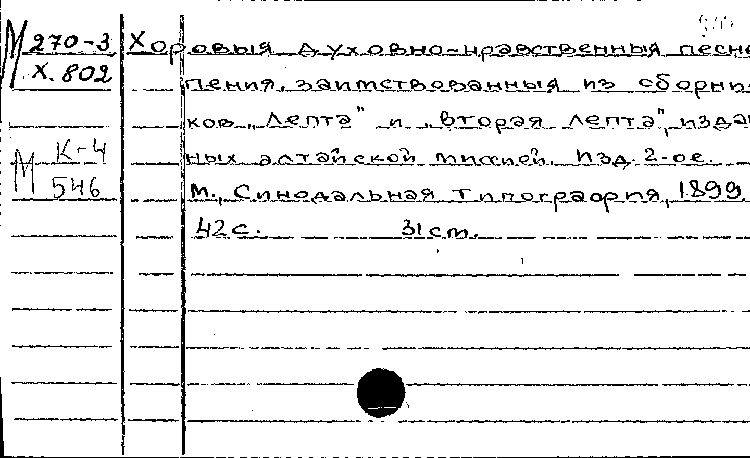 М 270-3 Хоровыя духовно-нравственныя песно
Х. 802 пения, заимствованныя из сборни-
ков „Лепта" и „вторая лепта", издан
М К-4 ных алтайской миссией. Изд. 2-ое.
546 М., Синодальная Типография, 1899.
42 с. 31 ст.